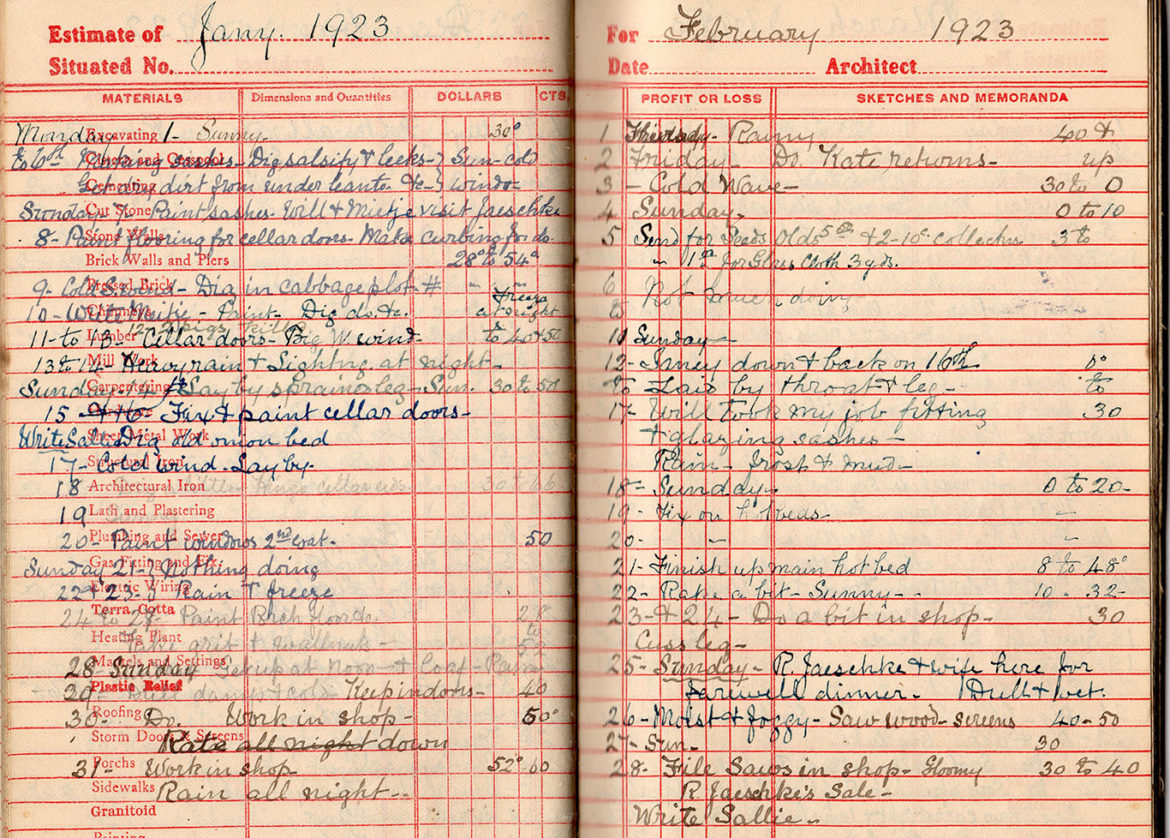 Estimate of Jany. 1923
Situated No.
MATERIALS Dimensions and Quantities DOLLARS CTS.
Monday Excavating 1 - Sunny 30°
to 6th sashes - Dig salsify & leeks - Sun - cold
Cementing dirt from under leanto &c - windo
Sunday 7 - Cut Stone Paint sashes - Will & Mietje visit Jaeschke
8 - Paint flooring for cellar doors - Make curbing for do.
Brick Walls and Piers 28° to 54°
9 - Cold Pressed Brick - Dig in cabbage plot - # " " Freeze
10 - Write Mietje - Paint - Dig do. &c. at night
Lumber 12 2 pigs
11 - to 13 - Cellar doors - Big W. wind - to 40 + 50
13 to 14 - Mill Work Heavy rain & Lightng. at night -
Sunday - 14 Carpentering Lay by sprained leg - Sun. 30 to 50
15 & 16 - Fix & paint cellar doors -
Write Sallie Sheet Metal Work Dig old onion bed
17 - Structural Iron Cold wind. Lay by.
18 Architectural Iron cellar lids 30 - 66
19 Lath and Plastering
20 - Plumbing and Sewer Paint windows 2nd coat - 50
Sunday 21 - Gas Fitting Nothing doing
22 + 23 - Electric Wiring Rain & freeze
Terra Cotta
24 to 28 - Paint Porch floor &c. 28
Heating Plant
Take grit &
28 Sunday Mantels and Settings Get up at noon - & Loaf - Rain
30 - Plastic Relief damp & cold Keep indoors - 40
30 - Roofing Do. Work in shop - 50°
Storm Doors & Screens
Rate all night down
31 - Porchs Work in shop 52° 60
Sidewalks Rain all night -
Granitoid
Painting
For February 1923
Date Architect
PROFIT OR LOSS SKETCHES AND MEMORANDA
1 Thursday - Rainy 40 &
2 Friday - Do. Kate returns - up
3 - Cold Wave - 30 to 0
4 Sunday - 0 to 10
5 Send for Seeds Olds 5th & 2 - 10c. collectns 3 to
" 1st for Glass Cloth 3 yds.
6 Not much doing
11 Sunday -
12 - down & back on 16th 0°
to Laid by throat & leg - to
17 - Will took my job fitting 30
& glazing sashes -
Rain - frost & mud -
18 - Sunday - 0 to 20 -
19 - Fix on hotbeds -
20 - " "
21 - Finish up main hot bed 8 to 48°
22 - Rake a bit - Sunny - 10 - 32 -
23 - & 24 - Do a bit in shop - 30
Cuss leg -
25 - Sunday - R. Jaeschke & wife here for
farewell dinner - Dull & wet.
26 - Moist & foggy - Saw wood - screens 40 - 50
27 - Sun - 30
28 - File Saws in shop - Gloomy 30 to 40
R. Jaeschke's Sale -
Write Sallie -